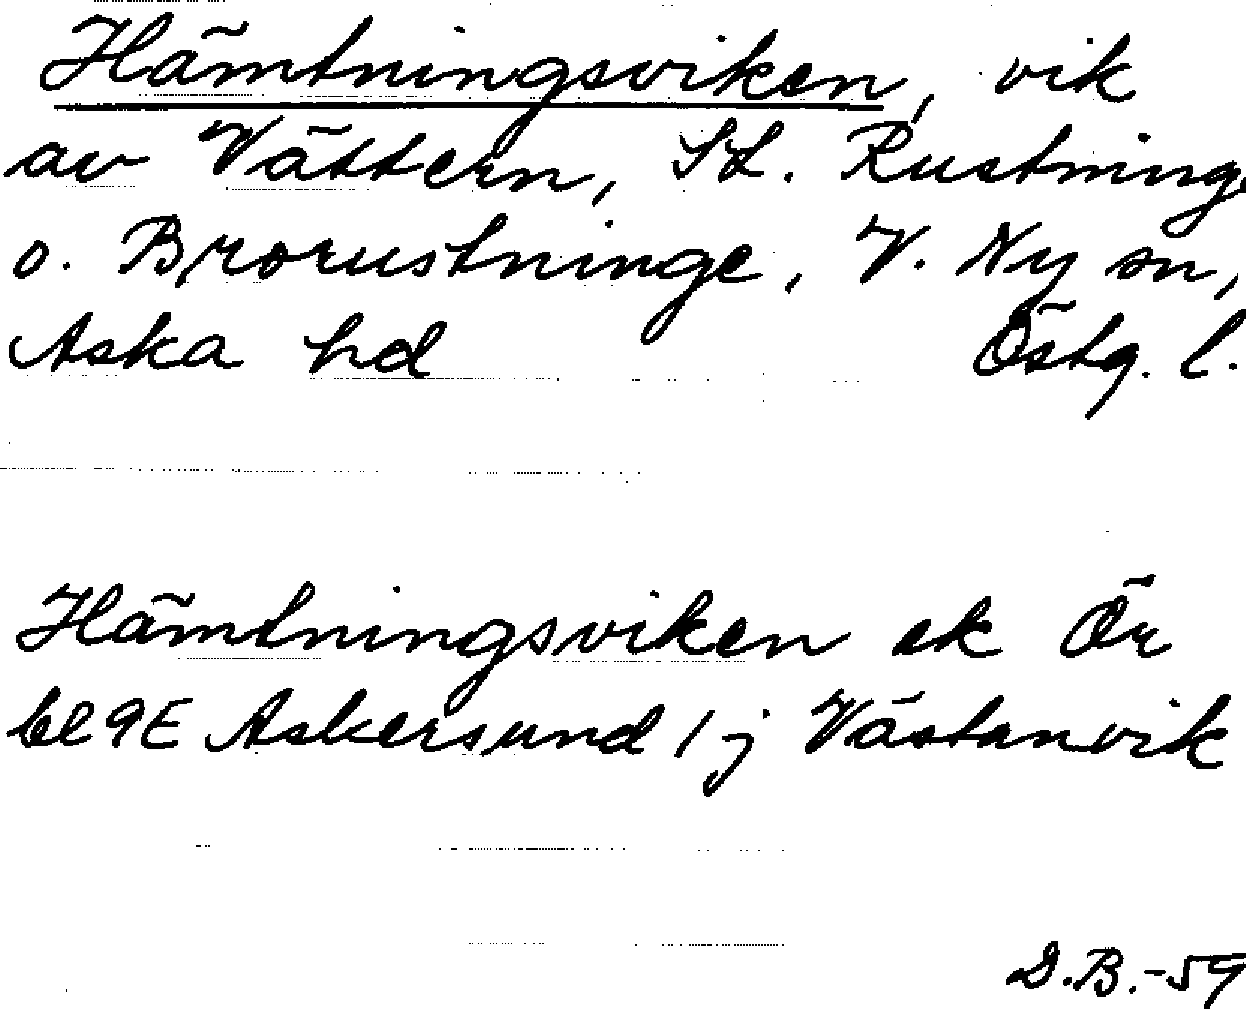 Hämtningsviken, vik
av Vättern, St. Rustninge
o. Brorustninge, V. Ny sn,
Aska hd Östg. l.
Hämtningsviken ek Ör
bl 9E Askersund 1 j Västanvik
D.B.-59